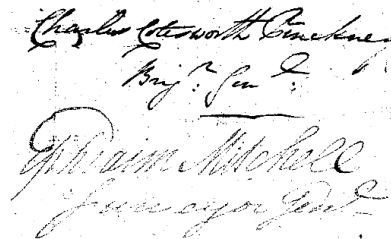 Charles Cotesworth Pinckney
Brigr. Genl.
Ephraim Mitchell
Surveyor Genl.